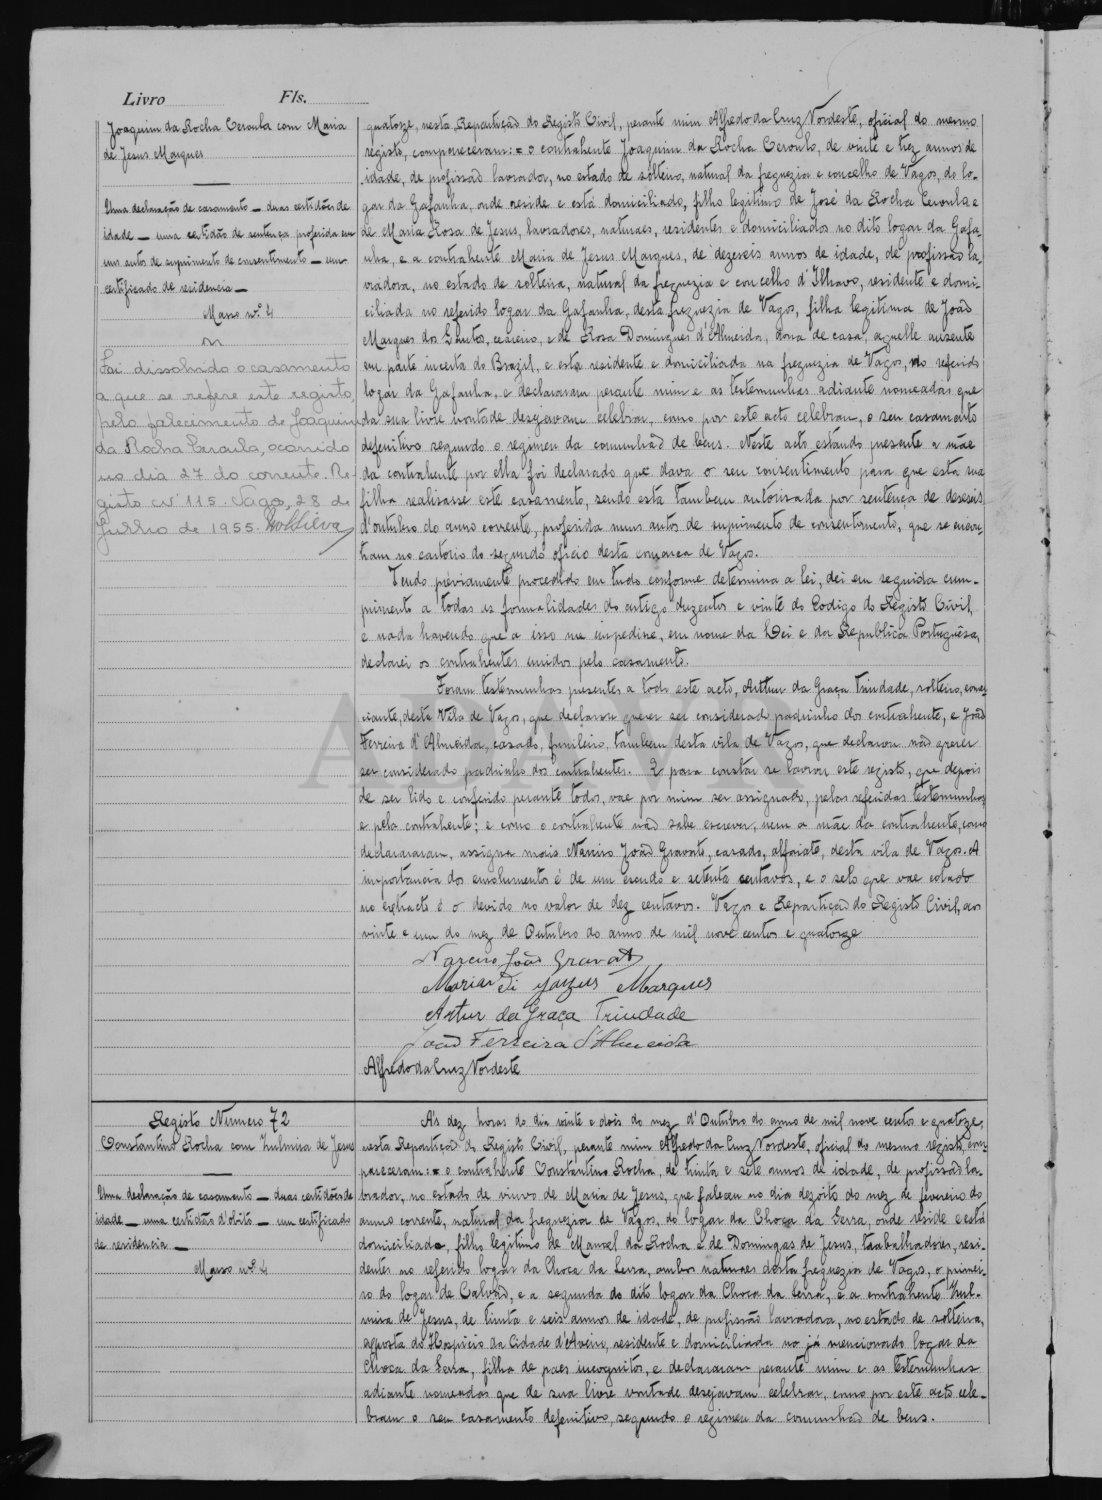 Livro Fls.
Joaquim da Rocha Ceroula com Maria
de Jesus Marques
Uma declaração de casamento — duas certidões de
idade — uma certidão de sentença proferida em
uns autos de suprimento de consentimento — um
certificado de residencia —
Masso nº 4
Foi dissolvido o casamento
a que se refere este registo,
pelo falecimento de Joaquim
da Rocha Ceroula, ocorrido
no dia 27 do corrente. Re-
gisto nº 115. Vagos, 28 de
Julho de 1955.
quatorze, nesta Repartição do Registo Civil, perante mim Alfredo da Cruz Nordeste, oficial do mesmo
registo, compareceram: = o contrahente Joaquim da Rocha Ceroulo, de vinte e trez annos de
idade, de profissão lavrador, no estado de solteiro, natural da freguezia e concelho de Vagos, do lo-
gar da Gafanha, onde reside e está domiciliado, filho legitimo de José da Rocha Ceroula e
de Maria Rosa de Jesus, lavradores, naturaes, residentes e domiciliados no dito logar da Gafa-
nha, e a contrahente Maria de Jesus Marques, de dezeseis annos de idade, de profissão la-
vradora, no estado de solteira, natural da freguezia e concelho d'Ilhavo, residente e domi-
ciliada no referido logar da Gafanha, desta freguezia de Vagos, filha legitima de João
Marques dos Santos, e de Rosa Domingues d'Almeida, dona de casa, aquelle ausente
em parte incerta do Brazil, e esta residente e domiciliada na freguezia de Vagos, no referido
logar da Gafanha, e declararam perante mim e as testemunhas adiante nomeadas que
da sua livre vontade desejavam celebrar, como por este acto celebram, o seu casamento
defenitivo segundo o regimen da comunhão de bens. Neste acto estando presente a mãe
da contrahente por ella foi declarado que dava o seu consentimento para que esta sua
filha realisasse este casamento, sendo esta tambem autorisada por sentença de deseseis
d'outubro do anno corrente, proferida nuns autos de suprimento de consentimento, que se encon-
tram no cartorio do segundo oficio desta comarca de Vagos.
Tendo préviamente procedido em tudo conforme determina a lei, dei em seguida cum-
primento a todas as formalidades do artigo duzentos e vinte do Codigo do Registo Civil,
e nada havendo que a isso me impedisse, em nome da Lei e da Republica Portuguêsa,
declarei os contrahentes unidos pelo casamento.
Foram testemunhas presentes a todo este acto, Arthur da Graça Trindade, solteiro, comer-
ciante, desta Vila de Vagos, que declarou querer ser considerado padrinho dos contrahente, e João
Ferreira d'Almeida, casado, funileiro, tambem desta vila de Vagos, que declarou não querer
ser considerado padrinho dos contrahentes. E para constar se lavrou este registo, que depois
de ser lido e conferido perante todos, vae por mim ser assignado, pelas referidas testemunhas
e pela contrahente; e como o contrahente não sabe escrever, nem a mãe da contrahente, como
declararam, assigna mais Narciso João Gravato, casado, alfaiate, desta vila de Vagos. A
importancia dos emolumentos é de um escudo e setenta centavos, e o selo que vae colado
no extracto é o devido no valor de dez centavos. Vagos e Repartição do Registo Civil, aos
vinte e um do mez de Outubro do anno de mil nove centos e quatorze
Narciso João Gravato
Maria di Marques
Artur da Graça Trindade
João Ferreira d'Almeida
Alfredo da Cruz Nordeste
ADAVR
Registo Numero 72
Constantino Rocha com Zulmira de Jesus
Uma declaração de casamento — duas certidões de
idade — uma certidão d'obito — um certificado
de residencia —
Masso nº 4
A's dez horas do dia vinte e dois do mez d'Outubro do anno de mil nove cento e quatorze,
nesta Repartição do Registo Civil, perante mim Alfredo da Cruz Nordeste, oficial do mesmo registo, com-
pareceram: = o contrahente Constantino Rocha, de trinta e sete annos de idade, de profissão la-
vrador, no estado de viuvo de Maria de Jesus, que faleceu no dia dezoito do mez de fevereiro do
anno corrente, natural da freguezia de Vagos, do logar da Choca da Serra, onde reside e está
domiciliado, filho legitimo de Manoel da Rocha e de Domingas de Jesus, trabalhadores, resi-
dentes no referido logar da Choca da Serra, ambos naturaes desta freguezia de Vagos, o primei-
ro do logar de Calvão, e a segunda do dito logar da Choca da Serra, e a contrahente Zul-
mira de Jesus, de trinta e seis annos de idade, de profissão lavradora, no estado de solteira,
exposta do Hospicio da Cidade d'Aveiro, residente e domiciliada no já mencionado logar da
Choca da Serra, filha de paes incognitos, e declararam perante mim e as testemunhas
adiante nomeadas que de sua livre vontade desejavam celebrar, como por este acto cele-
bram o seu casamento defenitivo, segundo o regimen da comunhão de bens.